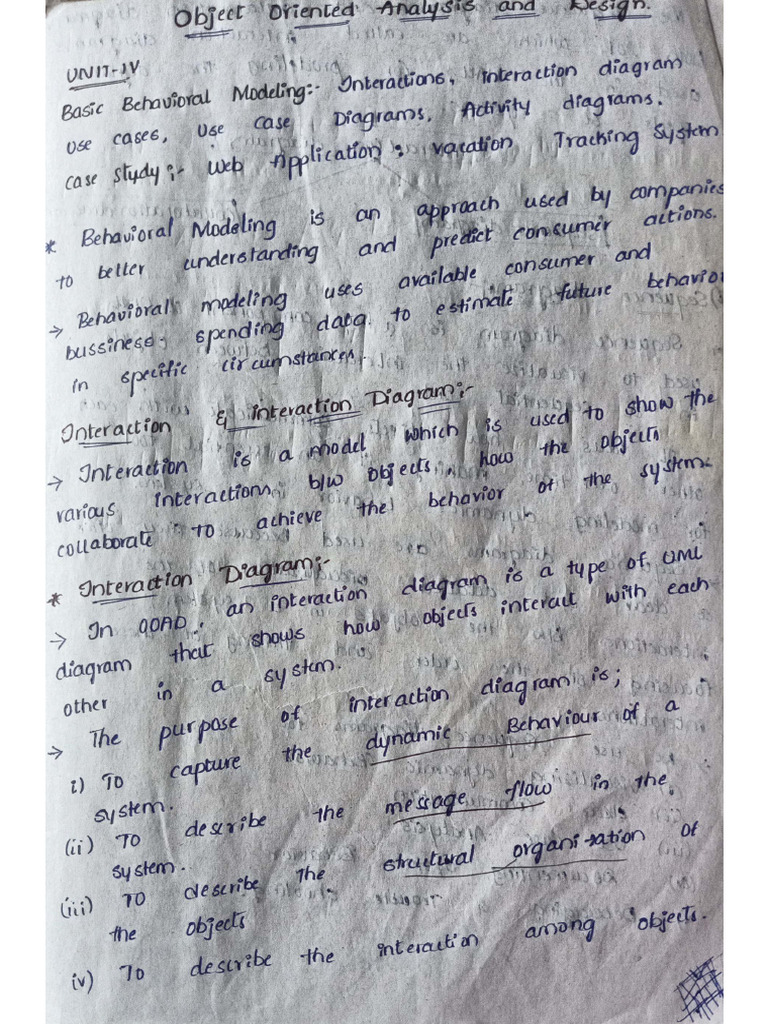 Object Oriented Analysis and Design.
UNIT-IV
Basic Behavioral Modeling:- Interactions, interaction diagram
Use cases, Use case Diagrams, Activity diagrams.
case study:- Web Application: vacation Tracking System
* Behavioral Modeling is an approach used by companies
to better understanding and predict consumer actions.
→ Behavioral modeling uses available consumer and
bussiness spending data to estimate future behavior
in specific circumstances.
Interaction & interaction Diagram:-
→ Interaction is a model which is used to show the
various interactions b/w objects, how the objects
collaborate to achieve the behavior of the system.
* Interaction Diagram:-
→ In OOAD, an interaction diagram is a type of UML
diagram that shows how objects interact with each
other in a system.
→ The purpose of interaction diagram is;
i) To capture the dynamic Behaviour of a
system.
(ii) To describe the message flow in the
system.
(iii) To describe the structural organization of
the objects
iv) To describe the interaction among objects.